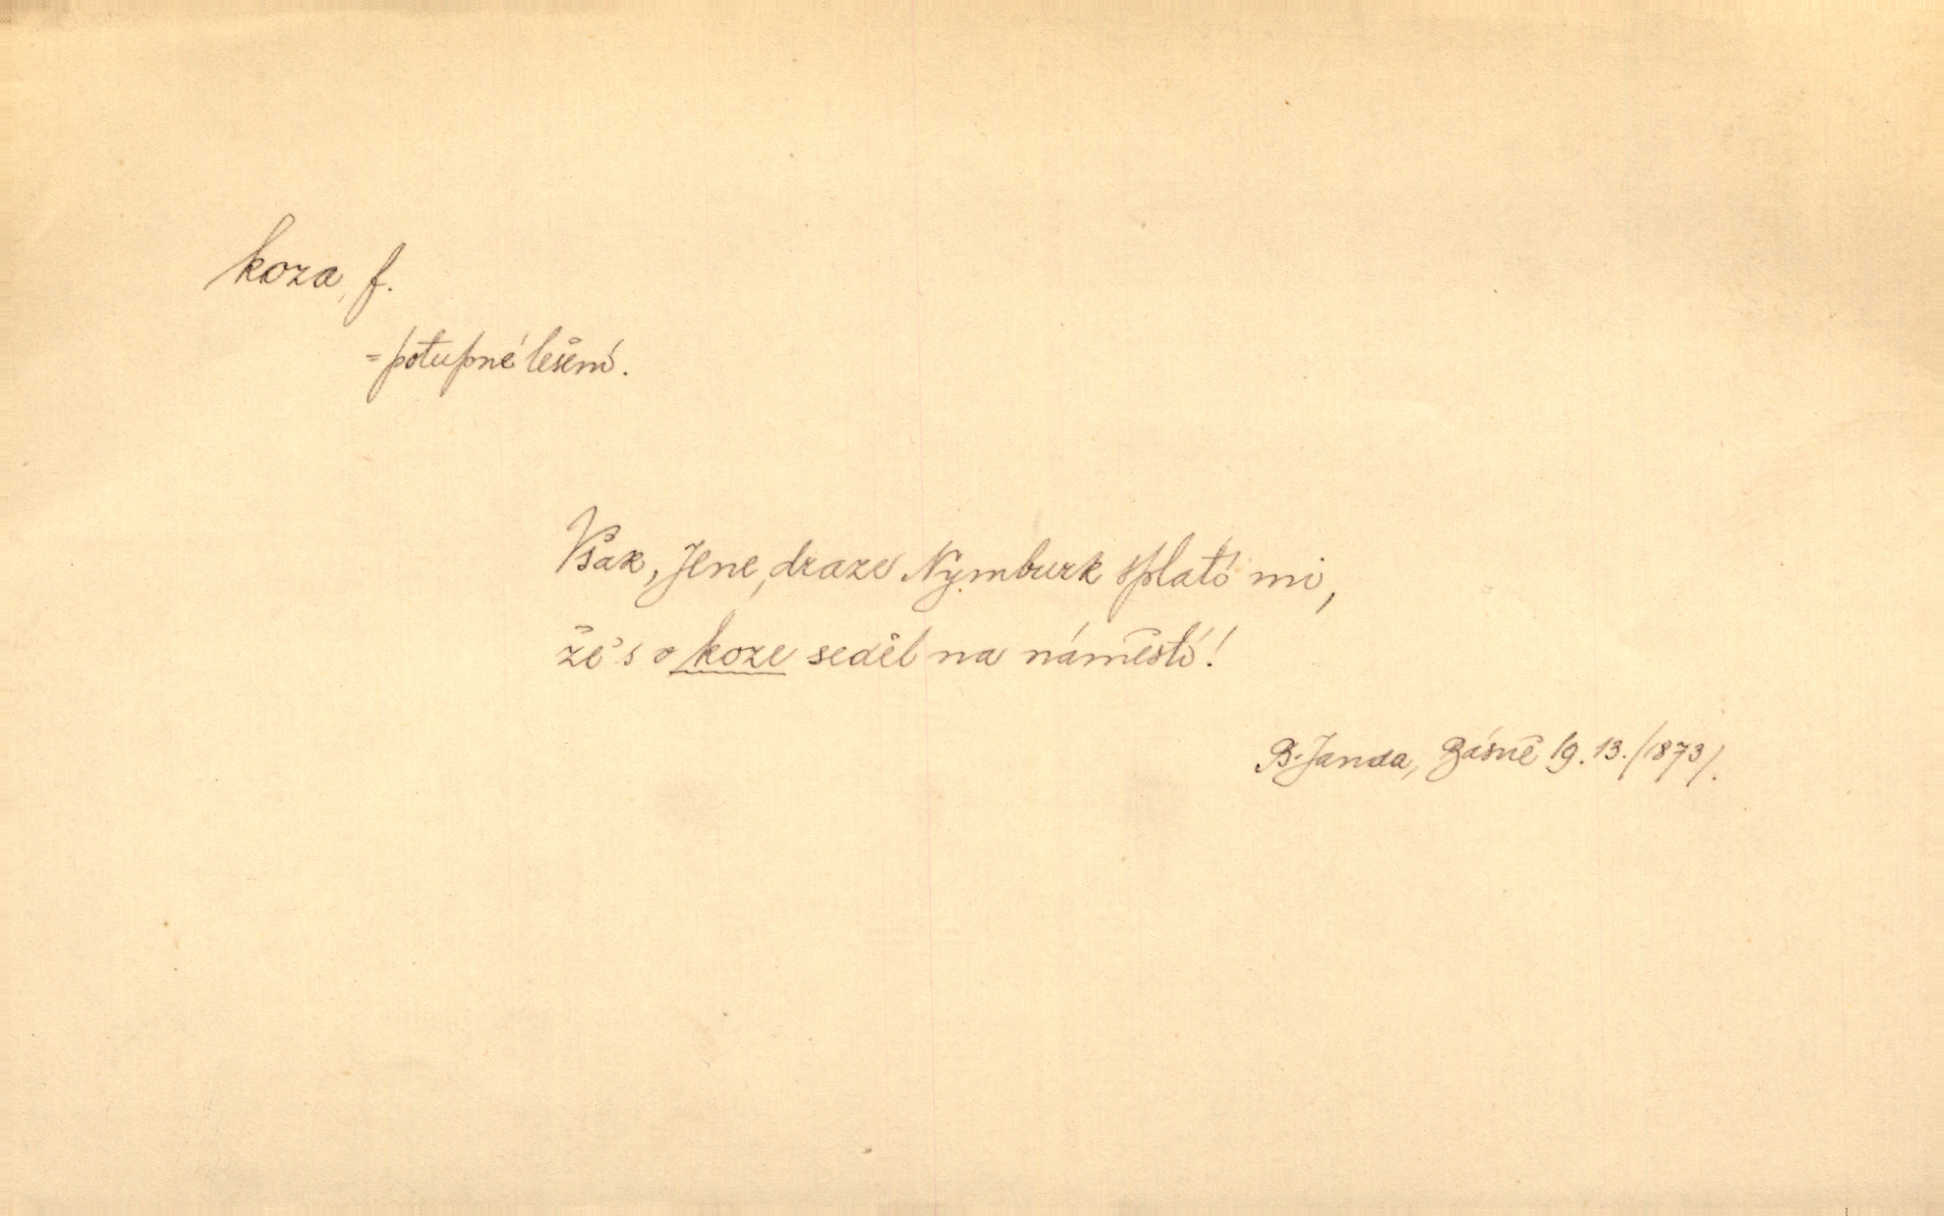 koza, f.
= potupné lešení.
Však, Jene, draze Nymburk splatí mi,
že's o koze seděl na náměstí!
B. Janda, Básně 19. 13. /1873/.